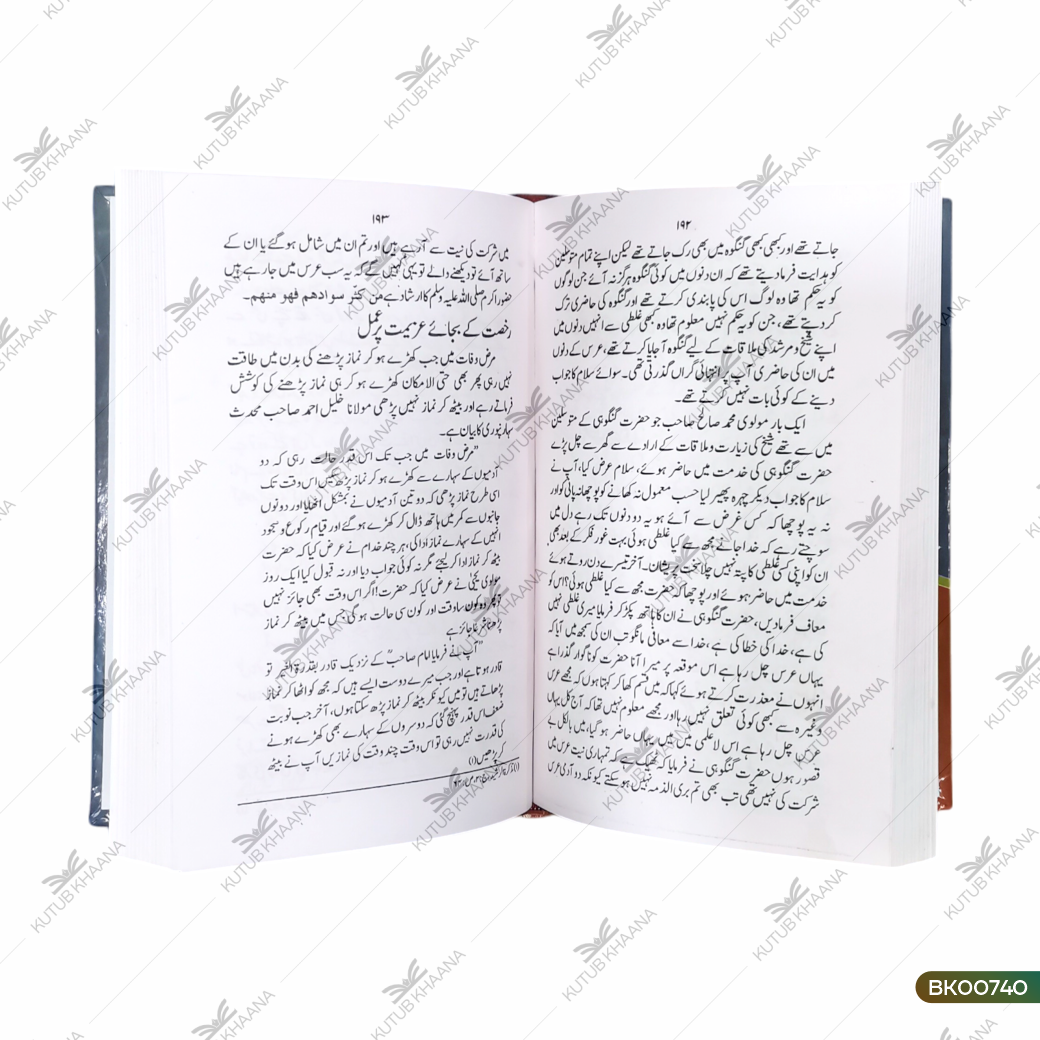 ۱۹۲
جاتے تھے اور کبھی کبھی گنگوہ میں بھی رک جاتے تھے لیکن اپنے تمام متوسلین
کو ہدایت فرما دیتے تھے کہ ان دنوں میں کوئی گنگوہ ہرگز نہ آئے جن لوگوں
کو یہ حکم تھا وہ لوگ اس کی پابندی کرتے تھے اور گنگوہ کی حاضری ترک
کر دیتے تھے، جن کو یہ حکم نہیں معلوم تھا وہ کبھی غلطی سے انہیں دنوں میں
اپنے شیخ و مرشد کی ملاقات کے لیے گنگوہ آ جایا کرتے تھے، عرس کے دنوں
میں ان کی حاضری آپ پر انتہائی گراں گذرتی تھی۔ سوائے سلام کا جواب
دینے کے کوئی بات نہیں کرتے تھے۔
ایک بار مولوی محمد صالح صاحب جو حضرت گنگوہی کے متوسلین
میں سے تھے شیخ کی زیارت و ملاقات کے ارادے سے گھر سے چل پڑے
حضرت گنگوہی کی خدمت میں حاضر ہوئے، سلام عرض کیا، آپ نے
سلام کا جواب دیکر چہرہ پھیر لیا حسب معمول نہ کھانے کو پوچھا نہ پانی کو اور
نہ یہ پوچھا کہ کس غرض سے آئے ہو یہ دو دنوں تک رہے دل میں
سوچتے رہے کہ خدا جانے مجھ سے کیا غلطی ہوئی بہت غور فکر کے بعد بھی
ان کو اپنی کسی غلطی کا پتہ نہیں چلا سخت پریشان۔ آخر تیسرے دن روتے ہوئے
خدمت میں حاضر ہوئے اور پوچھا کہ حضرت مجھ سے کیا غلطی ہوئی؟ اس کو
معاف فرما دیں، حضرت گنگوہی نے ان کا ہاتھ پکڑ کر فرمایا میری غلطی نہیں
کی ہے، خدا کی خطا کی ہے، خدا سے معافی مانگو تب ان کی سمجھ میں آیا کہ
یہاں عرس چل رہا ہے اس موقعہ پر میرا آنا حضرت کو ناگوار گذرا ہے
انہوں نے معذرت کرتے ہوئے کہا کہ میں قسم کھا کر کہتا ہوں کہ مجھے عرس
وغیرہ سے کبھی کوئی تعلق نہیں رہا اور مجھے معلوم نہیں تھا کہ آج کل یہاں
عرس چل رہا ہے اس لاعلمی میں میں یہاں حاضر ہو گیا، میں بالکل بے
قصور ہوں حضرت گنگوہی نے فرمایا کہ ٹھیک ہے کہ تمہاری نیت عرس میں
شرکت کی نہیں تھی تب بھی تم بری الذمہ نہیں ہو سکتے کیونکہ دو آدمی عرس
۱۹۳
میں شرکت کی نیت سے آ رہے ہیں اور تم ان میں شامل ہو گئے یا ان کے
ساتھ آئے تو دیکھنے والے تو یہی کہیں گے کہ یہ سب عرس میں جا رہے ہیں
حضور اکرم صلی اللہ علیہ وسلم کا ارشاد ہے من کثر سوادهم فهو منهم۔
رخصت کے بجائے عزیمت پر عمل
مرض وفات میں جب کھڑے ہو کر نماز پڑھنے کی بدن میں طاقت
نہیں رہی پھر بھی حتی الامکان کھڑے ہو کر ہی نماز پڑھنے کی کوشش
فرماتے رہے اور بیٹھ کر نماز نہیں پڑھی مولانا خلیل احمد صاحب محدث
سہارنپوری کا بیان ہے۔
"مرض وفات میں جب تک اس قدر حالت رہی کہ دو
آدمیوں کے سہارے سے کھڑے ہو کر نماز پڑھ سکیں اس وقت تک
اسی طرح نماز پڑھی کہ دو تین آدمیوں نے بمشکل اٹھایا اور دونوں
جانبوں سے کمر میں ہاتھ ڈال کر کھڑے ہو گئے اور قیام رکوع و سجود
انہیں کے سہارے نماز ادا کی، ہر چند خدام نے عرض کیا کہ حضرت
بیٹھ کر نماز ادا کر لیجئے مگر نہ کوئی جواب دیا اور نہ قبول کیا ایک روز
مولوی یحییٰ نے عرض کیا کہ حضرت! اگر اس وقت بھی جائز نہیں
تو پھر وہ کون سا وقت اور کون سی حالت ہو گی جس میں بیٹھ کر نماز
پڑھنا شرعاً جائز ہے
"آپ نے فرمایا امام صاحبؒ کے نزدیک قادر بقدرة الغیر تو
قادر ہوتا ہے اور جب میرے دوست ایسے ہیں کہ مجھ کو اٹھا کر نماز
پڑھاتے ہیں تو میں کیونکر بیٹھ کر نماز پڑھ سکتا ہوں، آخر جب نوبت
ضعف اس قدر پہنچ گئی کہ دوسروں کے سہارے بھی کھڑے ہونے
کی قدرت نہیں رہی تو اس وقت چند وقت کی نمازیں آپ نے بیٹھ
کر پڑھیں (۱)
(۱) تذکرۃ الرشید
BK00740
KUTUB KHAANA